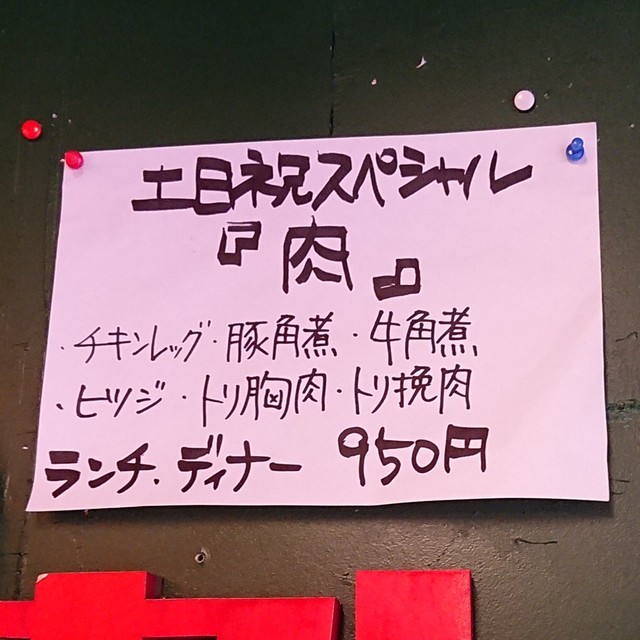 土日祝スペシャル
『肉』
・チキンレッグ・豚角煮・牛角煮
・ヒツジ・トリ胸肉・トリ挽肉
ランチ・ディナー 950円